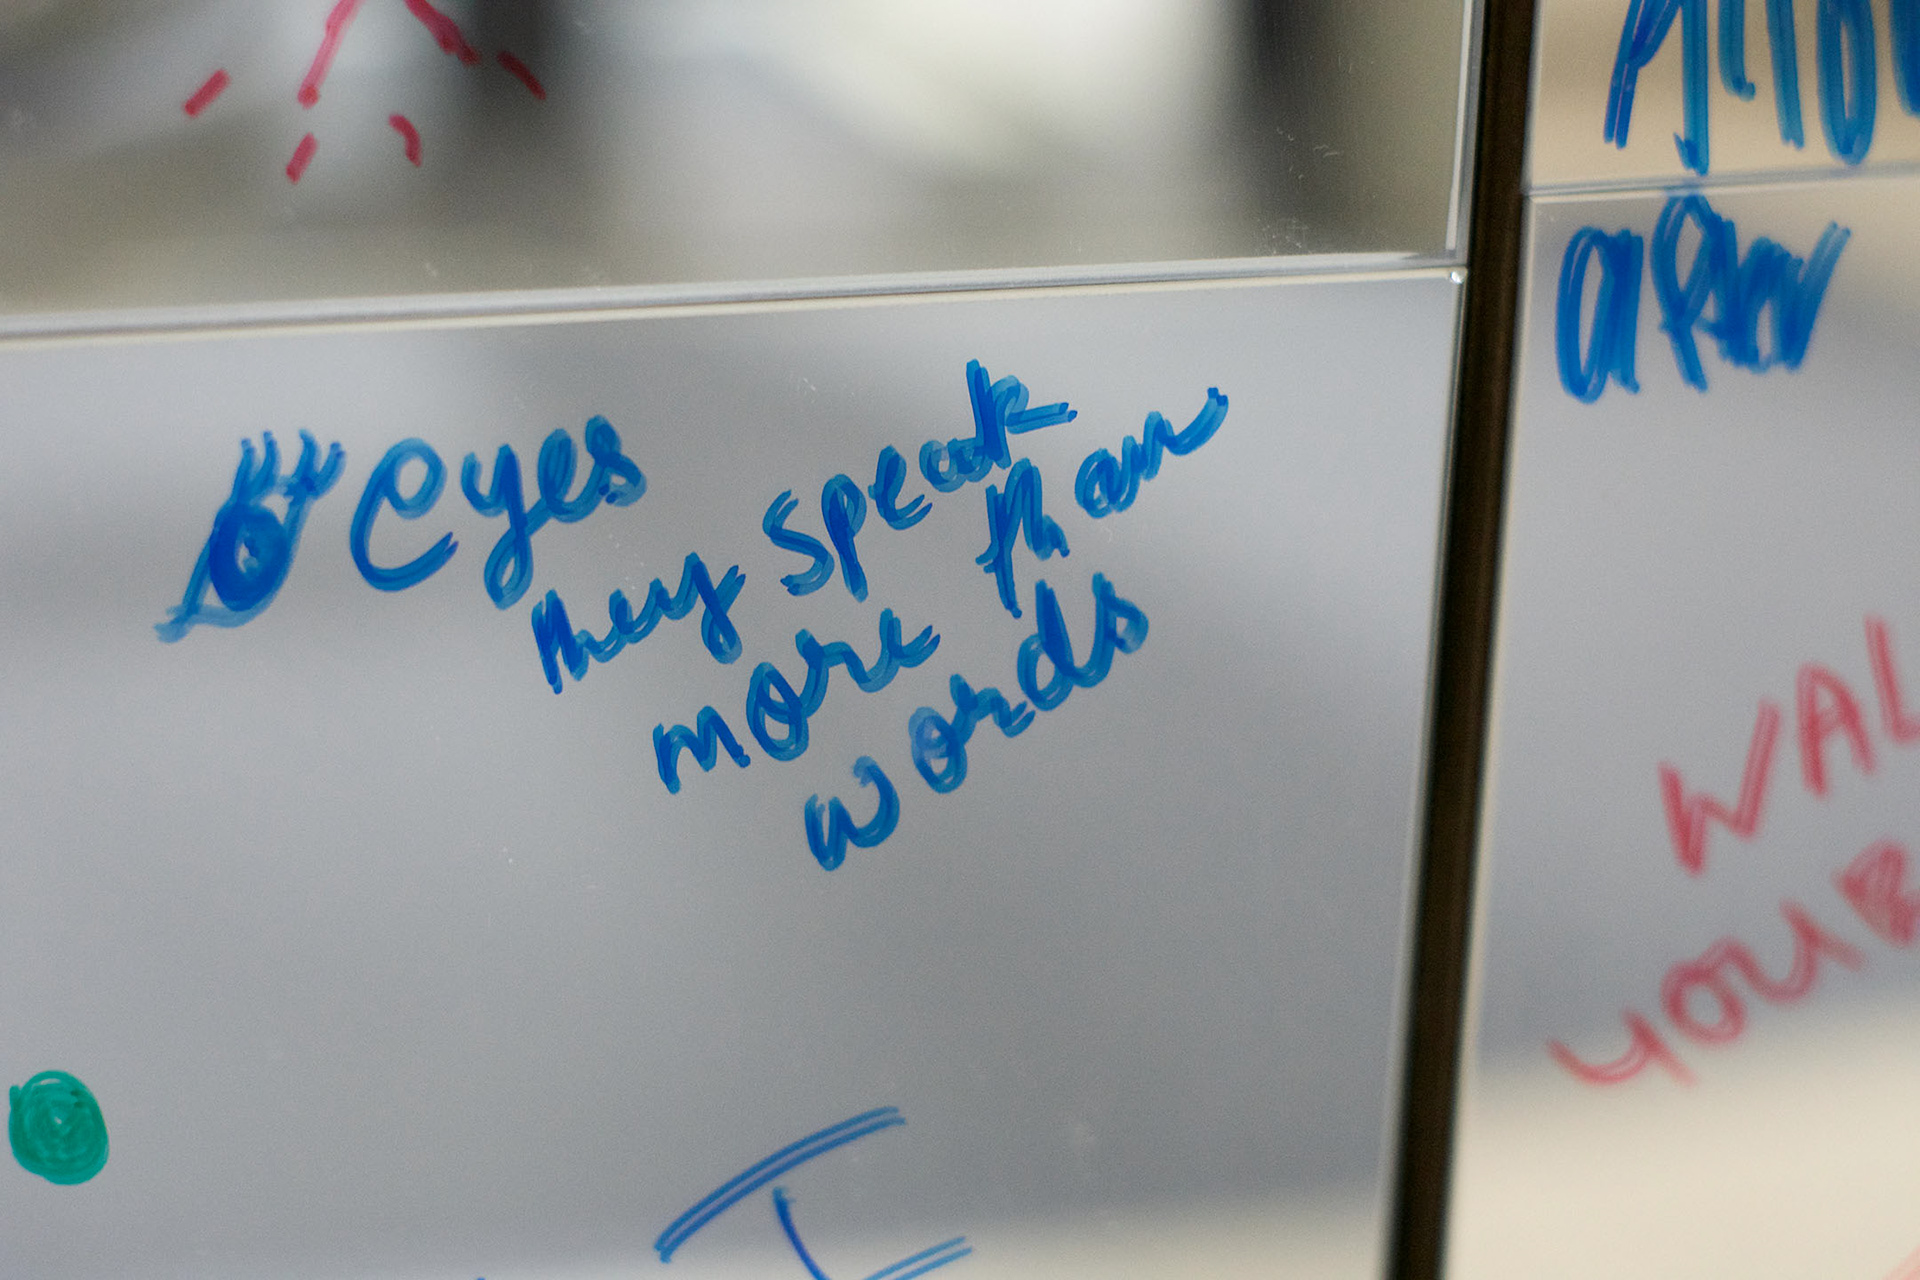 eyes
they speak
more than
words
I
after
WAL
YOUR